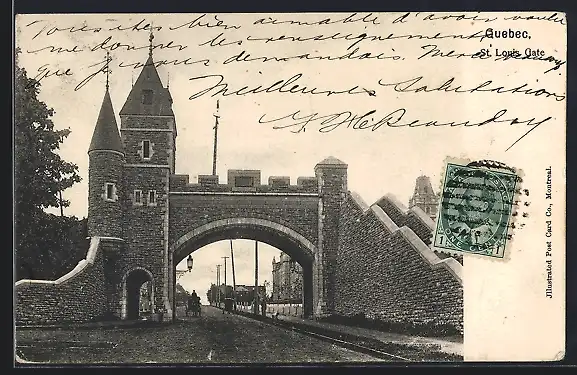 Vous êtes bien aimable d'avoir voulu
me donner les renseignements
que je vous demandais. Merci
Meilleures Salutations
H. Beaudry
Quebec,
St. Louis Gate
1
Jllustrated Post Card Co., Montreal.